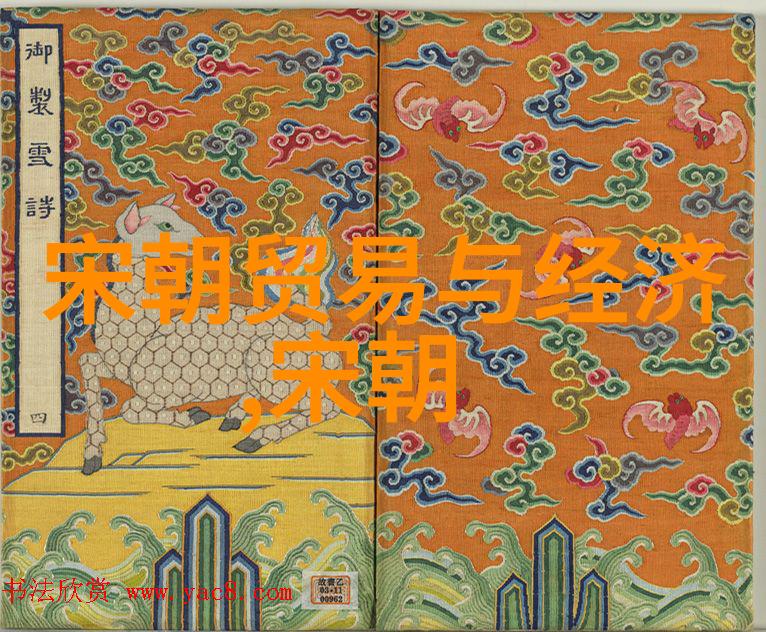 御製雪詩
四
宋朝贸易与经济
,宋朝
书法欣赏 www.yac8.com
故書乙
03•11
00962